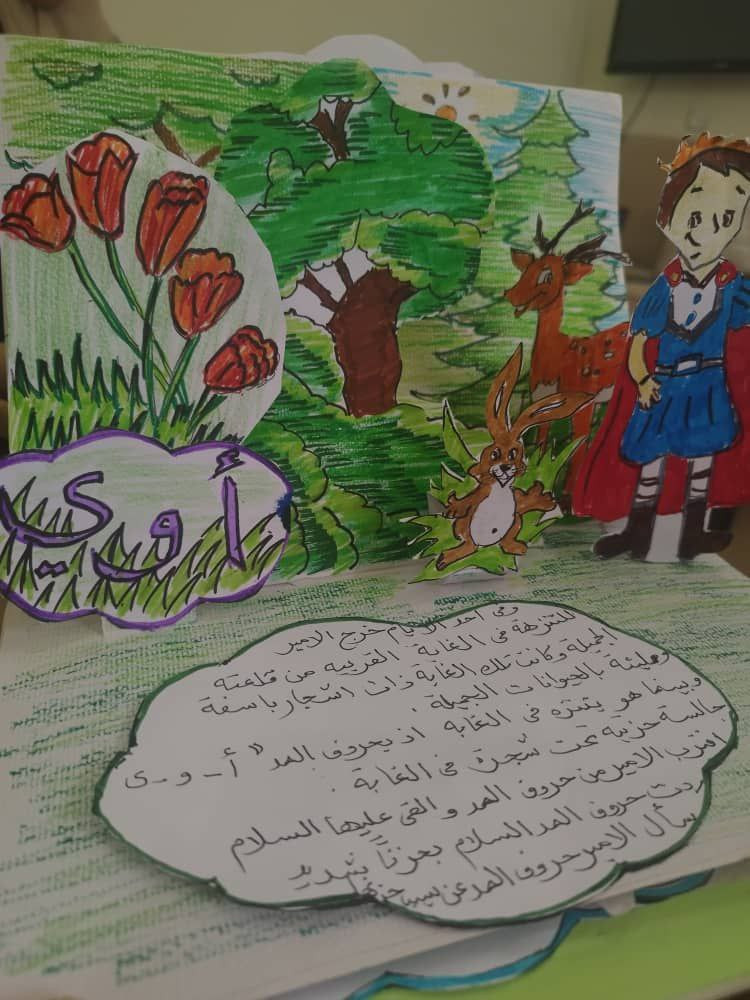 أ و ي
وفى احد الايام خرج الامير
للتنزهة فى الغابة القريبه من قلعته
الجميلة وكانت تلك الغابة ذات اشجار باسقة
ومليئة بالحيوانات الجميلة .
وبينما هو يتنزه فى الغابة اذ بحروف المد " أ - و - ى
جالسة حزينه تحت شجرة فى الغابة .
اقترب الامير من حروف المد و القى عليها السلام
ردت حروف المد السلام بحزنًا شديد
سأل الامير حروف المد عن سبب حزنها